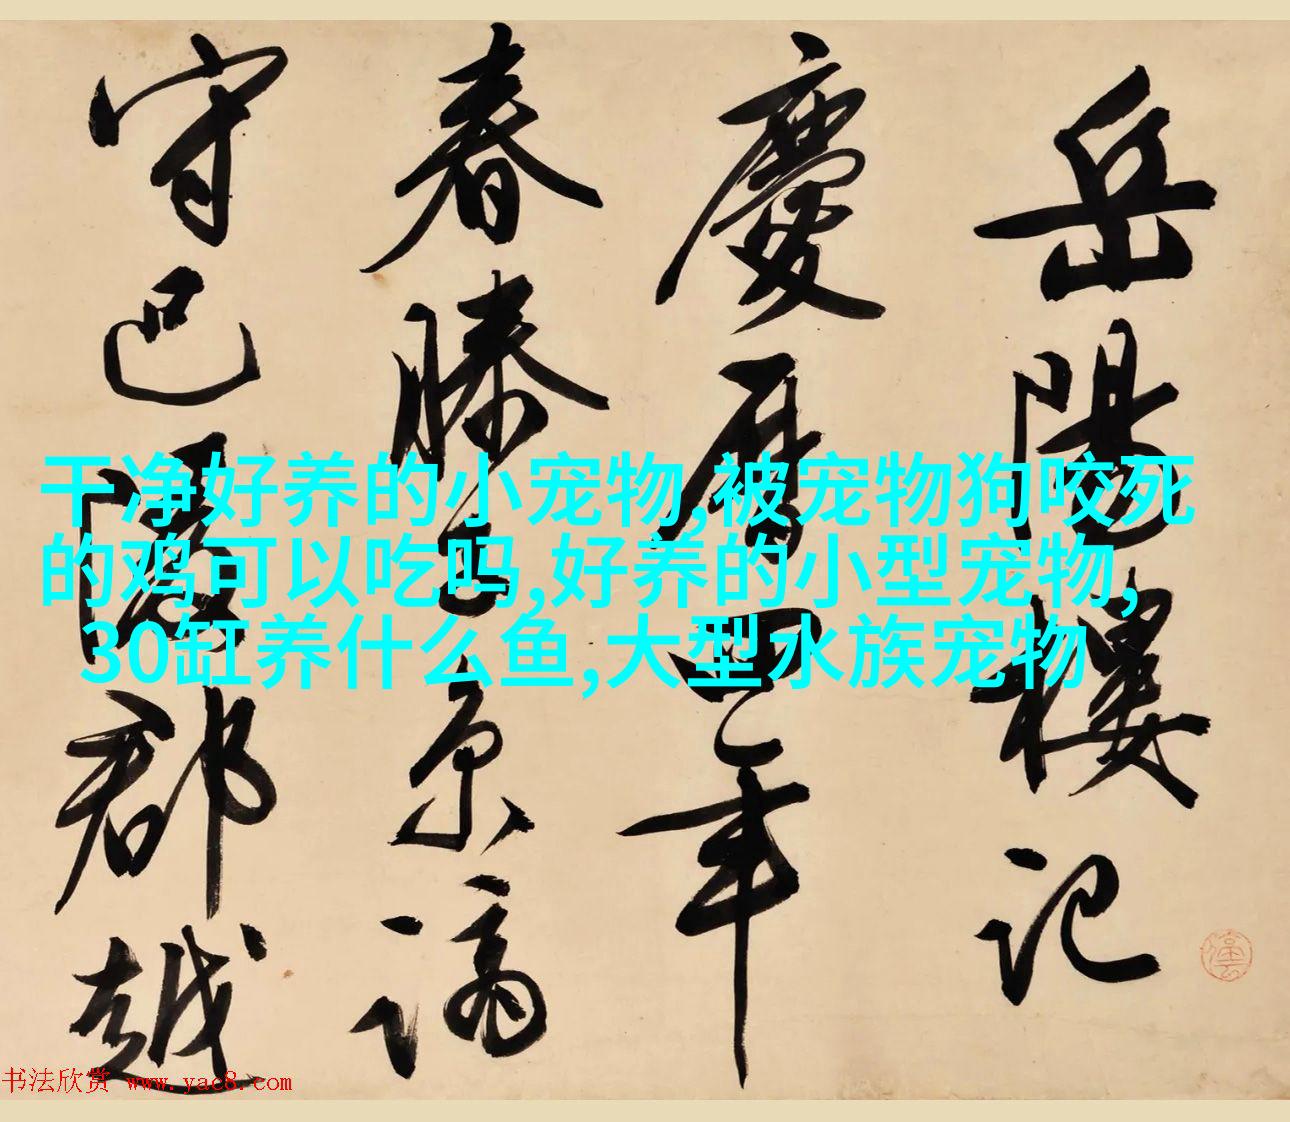 岳陽樓記
慶曆四年
春滕子京謫
守巴陵郡越
干净好养的小宠物,被宠物狗咬死
的鸡可以吃吗,好养的小型宠物,
30缸养什么鱼,大型水族宠物
书法欣赏 www.yac8.com